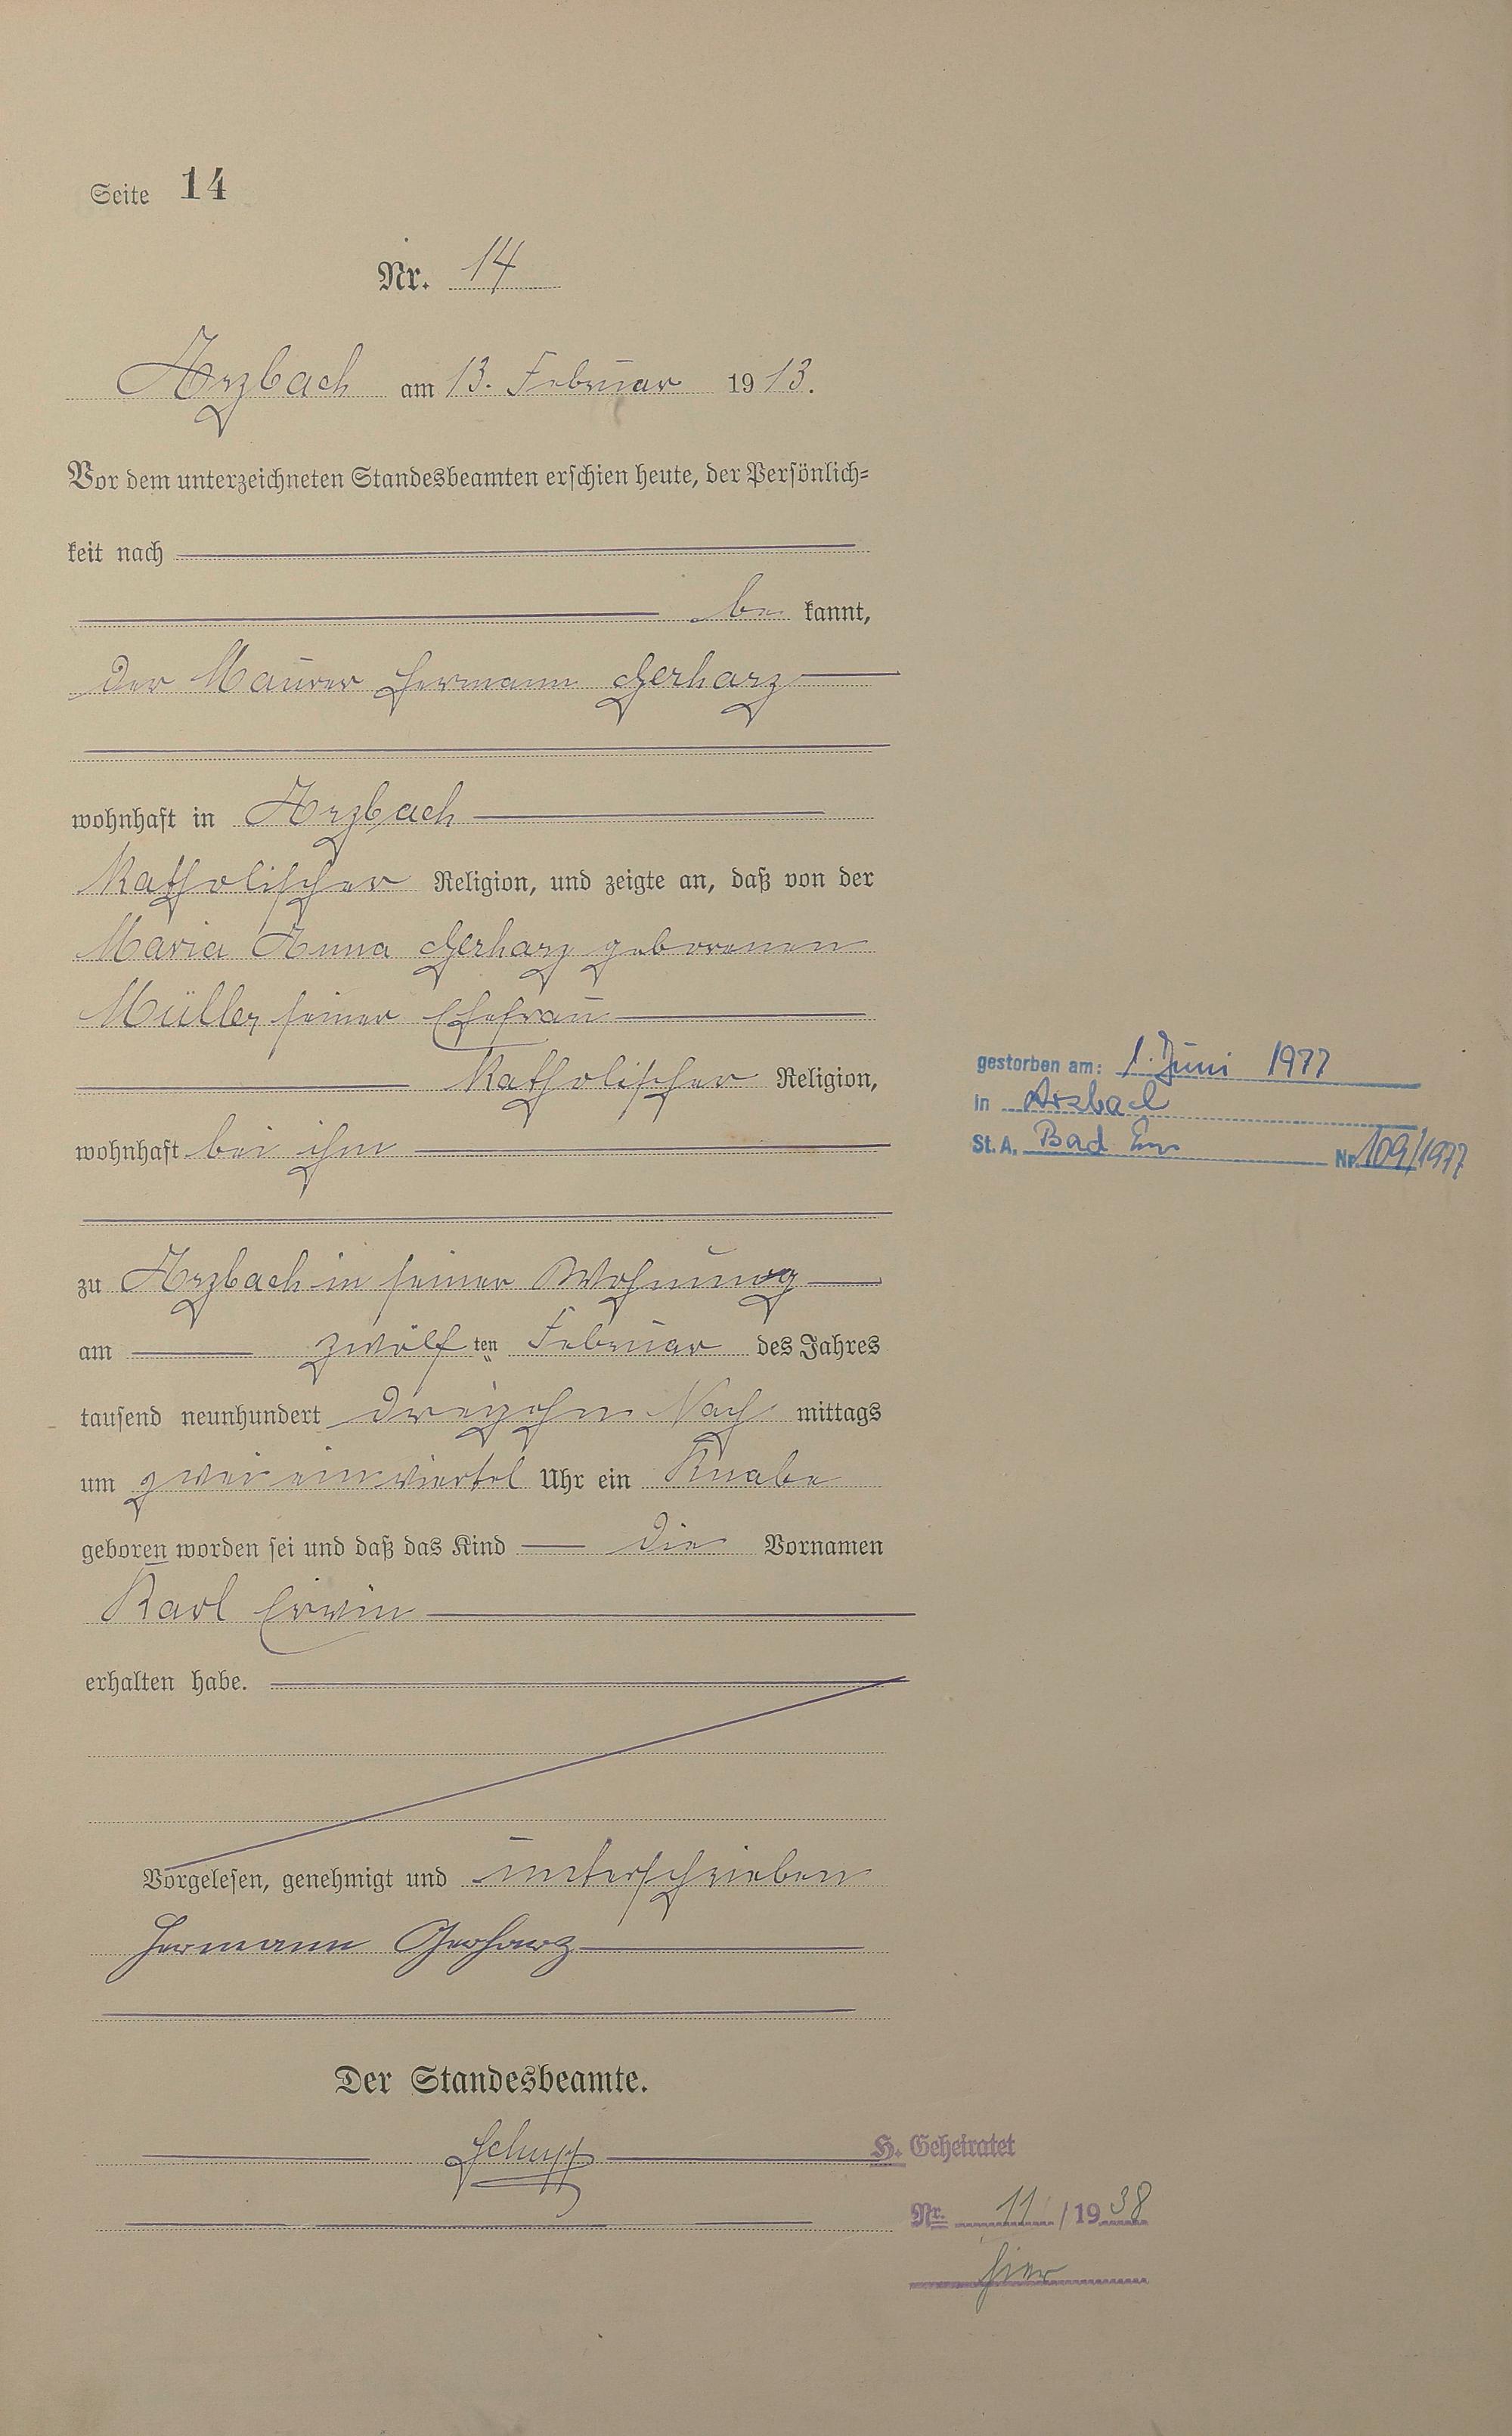 Seite 14
Nr. 14
Arzbach am 13. Februar 1913.
Vor dem unterzeichneten Standesbeamten erschien heute, der Persönlich=
keit nach
be kannt,
der Maurer Hermann Gerharz
wohnhaft in Arzbach
katholischer Religion, und zeigte an, daß von der
Maria Anna Gerharz geborenen
Müller seiner Ehefrau
katholischer Religion,
wohnhaft bei ihm
zu Arzbach in seiner Wohnung
am zwölf ten Februar des Jahres
tausend neunhundert dreizehn Nach mittags
um zwei einviertel Uhr ein Knabe
geboren worden sei und daß das Kind die Vornamen
Karl Erwin
erhalten habe.
Vorgelesen, genehmigt und unterschrieben
Hermann Gerharz
Der Standesbeamte.
Schupp
gestorben am: 1. Juni 1977
in Arzbach
St. A. Bad Ems Nr. 109/1977
H. Geheiratet
Nr. 11 / 1938
hier